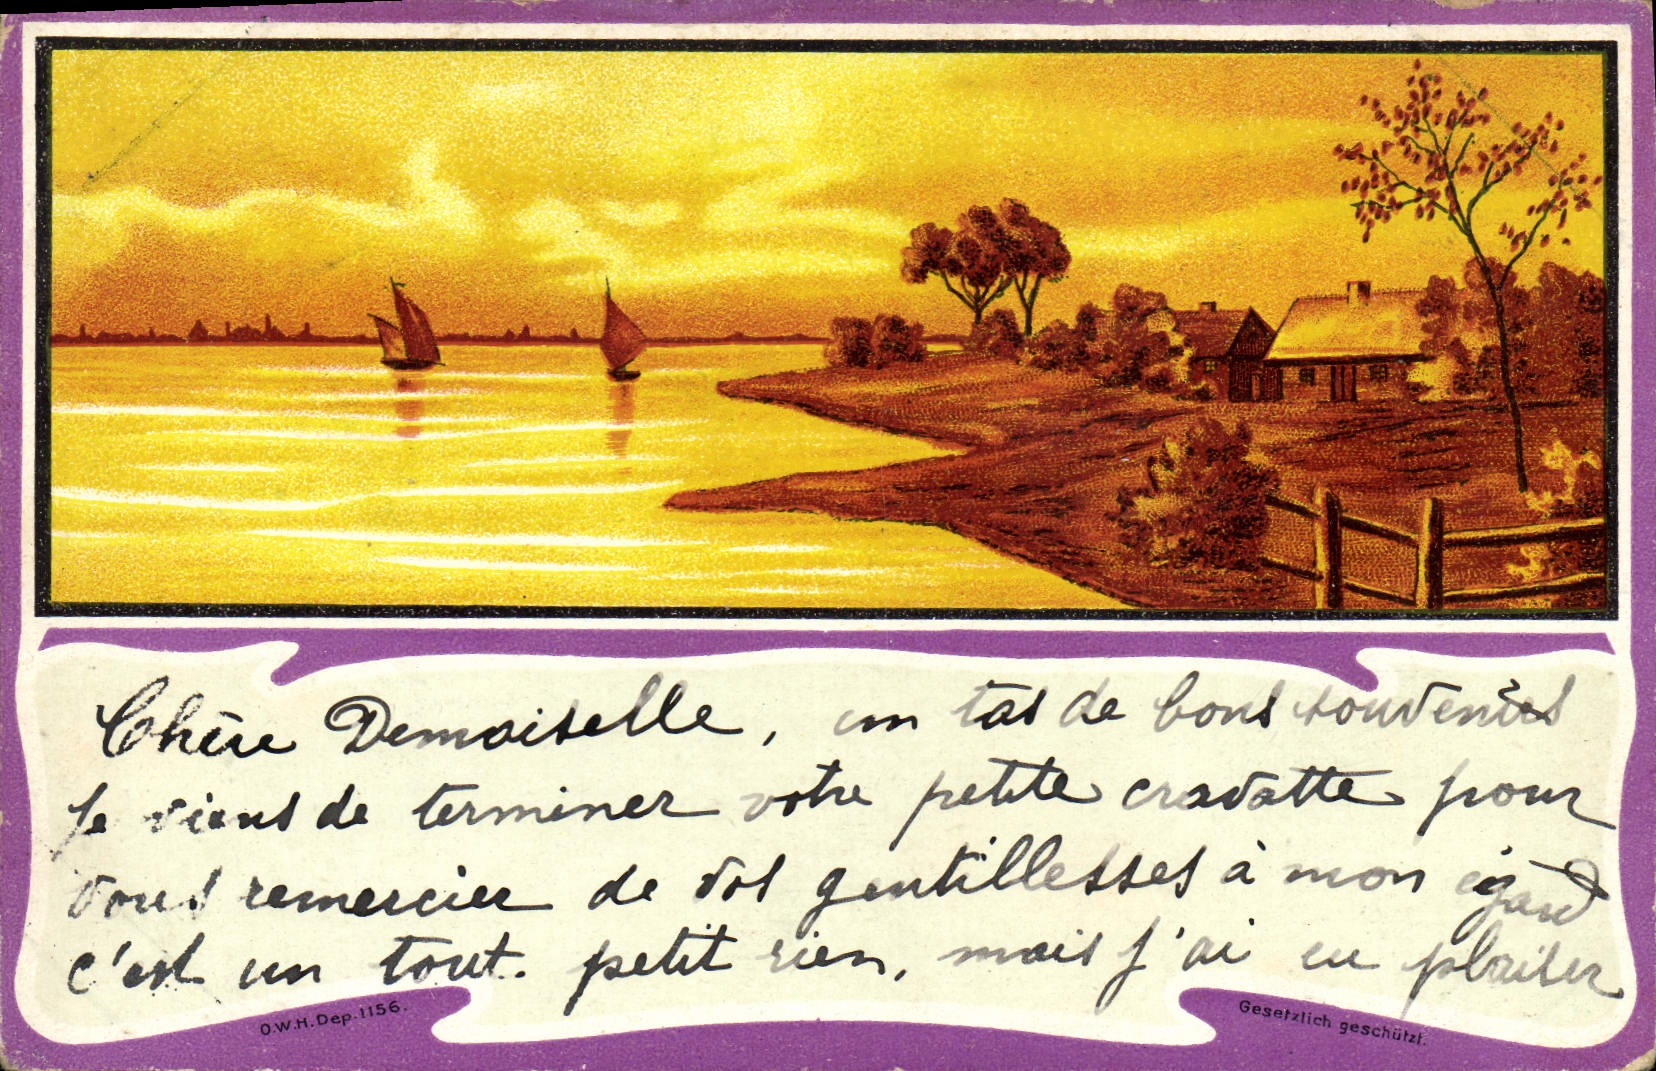 Chère Demoiselle, un tas de bons souvenirs
Je viens de terminer votre petite cravatte pour
vous remercier de vos gentillesses à mon égard
c'est un tout. petit rien, mais j'ai eu plaisir
O.W.H. Dep. 1156.
Gesetzlich geschützt.